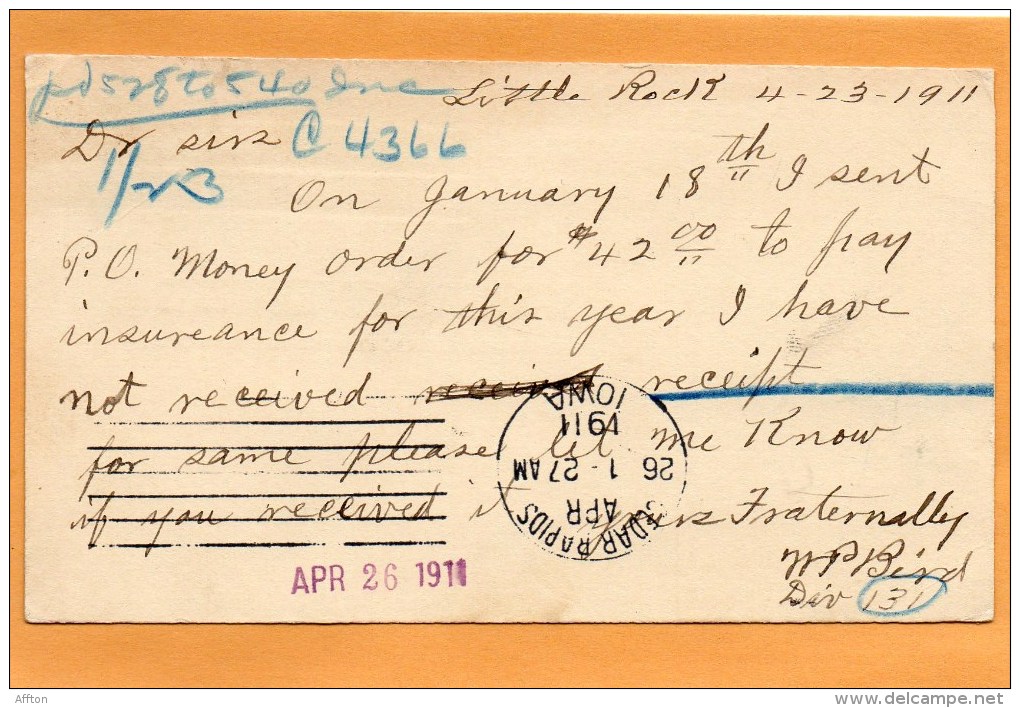 pd 528 to 540 Inc
Little Rock 4-23-1911
Dr sirs C 4366
1/23
On January 18th I sent
P.O. Money order for $42 00 to pay
insureance for this year I have
not received receipt
for same please let me Know
if you received it Yours Fraternally
W P Bird
Div 131
CEDAR RAPIDS
APR
26 1-27 AM
1911
IOWA
APR 26 1911
Affton
www.delcampe.net